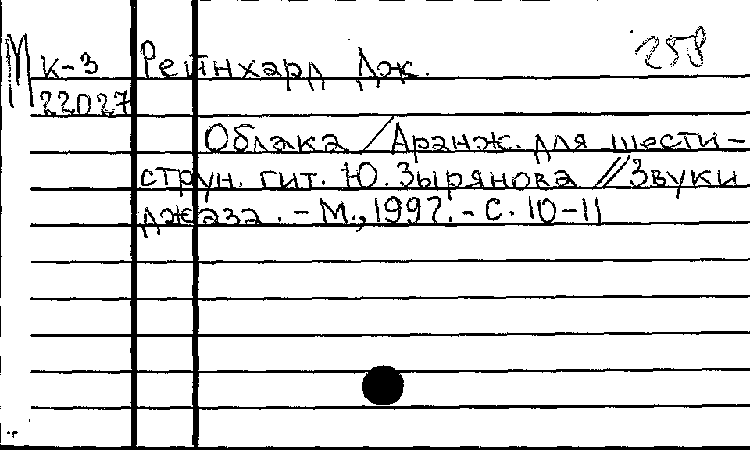 М к-3 Рейнхард Дж. 258
22027
Облака / Аранж. для шести-
струн. гит. Ю. Зырянова // Звуки
джаза. - М., 1997. - С. 10-11